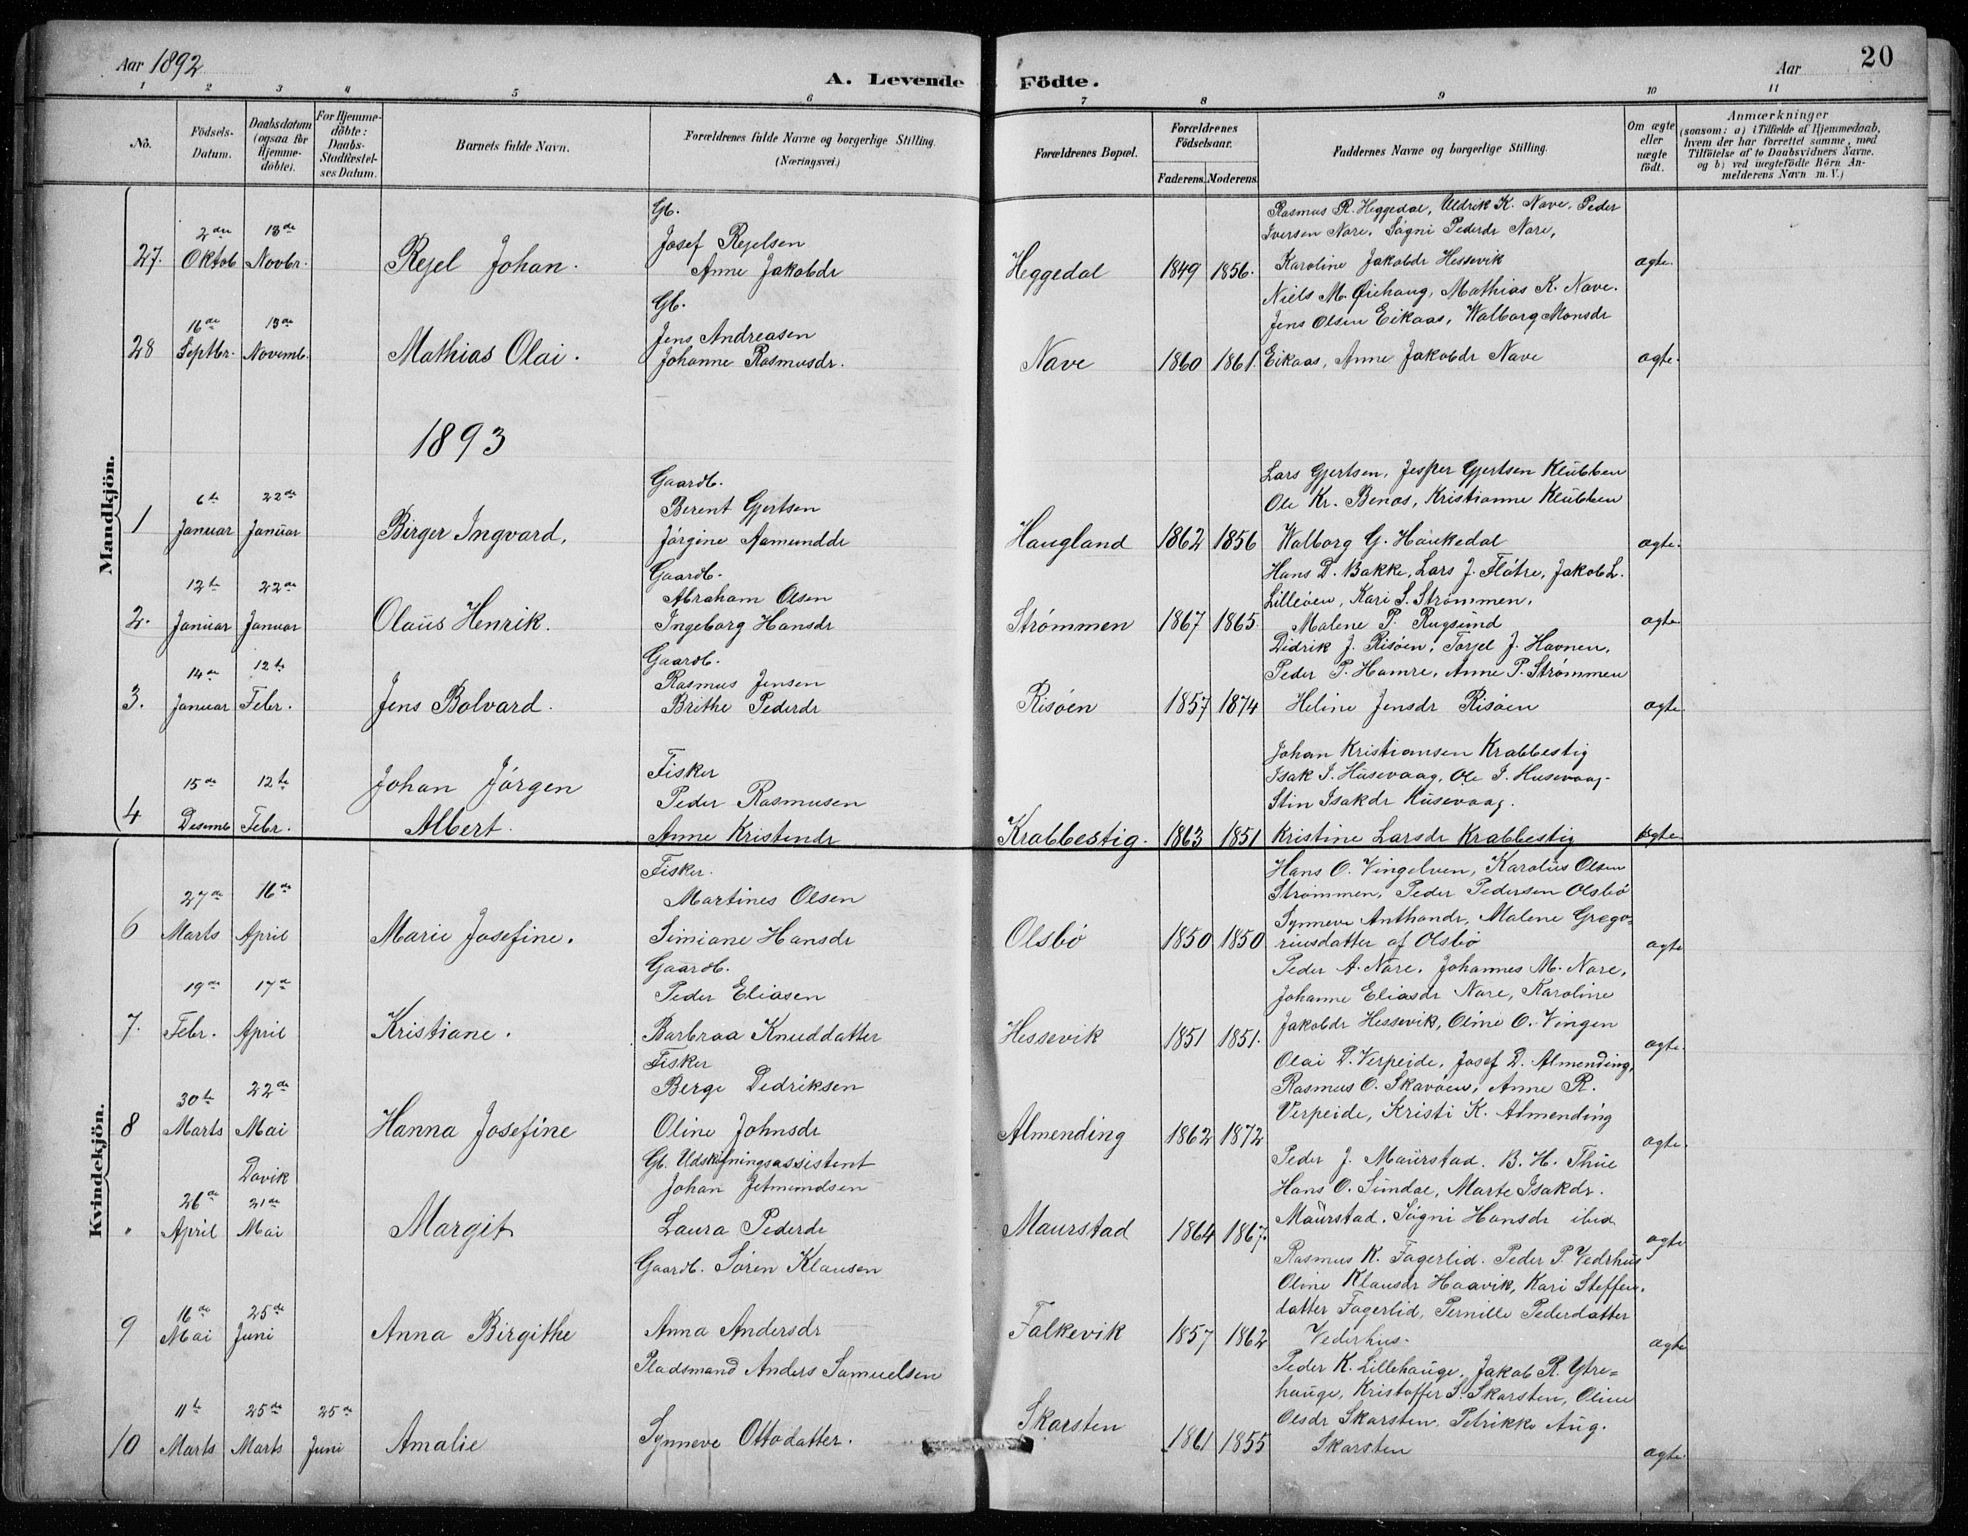 Aar 1892
A. Levende Födte.
Aar
20
1 2 3 4 5 6 7 8 9 10 11
No.
Födsels-Datum.
Daabsdatum (ogsaa for Hjemme-döbte).
For Hjemme-döbte: Daabs-Stadfæstel-ses Datum.
Barnets fulde Navn.
Forældrenes fulde Navne og borgerlige Stilling. (Næringsvei)
Forældrenes Bopæl.
Forældrenes Födselsaar.
Faderens. Moderens.
Faddernes Navne og borgerlige Stilling.
Om ægte eller uægte födt.
Anmærkninger
(saasom: a) i Tilfælde af Hjemmedaab,
hvem der har forrettet samme, med
Tilföielse af to Daabsvidners Navne.
og b) ved uægtefödte Börn An-
melderens Navn m. V.)
Mandkjön.
27. 2den Oktob 13de Novbr.
Rejel Johan.
Gb.
Josef Rejelsen
Anne Jakobdr
Heggedal 1849 1856.
Rasmus R. Heggedal, Uldrik K. Nave, Peder
Iversen Nore, Søgni Pederdr Nore,
Karoline Jakobdr Hessevik
ægte.
28 16de Septbr. 13de Novemb.
Mathias Olai.
Gb.
Jens Andreasen
Johanne Rasmusdr.
Nave 1860 1861.
Niels M. Øiehaug, Mathias K. Nave.
Jens Olsen Eikaas, Walborg Monsdr
Eikaas, Anne Jakobdr Nave
ægte.
1893
1 6te Januar 22de Januar
Birger Ingvard,
Gaardb.
Berent Gjertsen
Jørgine Aamunddr
Haugland 1862 1856
Lars Gjertsen, Jesper Gjertsen Klubben
Ole Kr. Benos, Kristianne Klubben
Walborg G. Haukedal
ægte.
2. 12te Januar 22de Januar
Olaus Henrik.
Gaardb.
Abraham Olsen
Ingeborg Hansdr
Strømmen 1867 1865.
Hans D. Bakke, Lars J. Fløtre, Jakob L.
Lilleøen, Kari S. Strømmen,
Malene P. Rugsund
ægte
3. 14de Januar 12te Febr.
Jens Bolvard.
Gaardb.
Rasmus Jensen
Brithe Pederdr
Risøen 1857 1874
Didrik J. Risøen, Torjel J. Havnen,
Peder P. Hamre, Anne P. Strømmen
Heline Jensdr Risøen
ægte
4 15de Desemb 12te Febr.
Johan Jørgen
Albert.
Fisker
Peder Rasmusen
Anne Kristendr
Krabbestig. 1863 1851
Johan Kristiansen Krabbestig
Isak I. Husevaag, Ole I. Husevaag.
Stin Isakdr Husevaag.
Kristine Larsdr Krabbestig
ægte
Kvindekjön.
6 27de Marts 16de April
Marie Josefine.
Fisker.
Martines Olsen
Simiane Hansdr
Olsbø 1850 1850
Hans O. Vingelven, Karolus Olsen
Strømmen, Peder Pedersen Olsbø
Synneve Anthondr, Malene Grego-
riusdatter af Olsbø
ægte
7. 19de Febr. 17de April
Kristiane.
Gaardb.
Peder Eliasen
Barbraa Knuddatter
Hessevik 1851 1851.
Peder A. Nore, Johannes M. Nore,
Johanne Eliasdr Nore, Karoline
Jakobdr Hessevik, Oline O. Vingen
ægte.
8 30te Marts 22de Mai
Hanna Josefine
Fisker
Berge Dedriksen
Oline Johnsdr
Almending 1862 1872
Olai D. Verpeide, Josef D. Almending,
Rasmus O. Skavøen, Anne R.
Verpeide, Kristi K. Almending
ægte.
" 26de April Davik 21de Mai
Margit
Gb. Udskiftningsassistent
Johan Jetmundsen
Laura Pederdr
Maurstad 1864 1867.
Peder J. Maurstad. B. H. Thue
Hans O. Sundal, Marte Isakdr.
Maurstad, Søgni Hansdr ibid
ægte
9 16de Mai 25de Juni
Anna Birgithe
Gaardb. Søren Klausen
Anna Andersdr
Falkevik 1857 1862
Rasmus K. Fagerlid. Peder P. Vedrhus
Oline Klausdr Haavik, Kari Steffen.
datter Fagerlid, Pernille Pederdatter
Vederhus.
ægte
10 11te Marts 25de Marts 25de Juni
Amalie
Pladsmand Anders Samuelsen
Synneve Ottodatter.
Skorsten 1861 1855
Peder K. Lillehauge, Jakob R. Ytre=
hauge, Kristoffer S. Skorsten, Oline
Olsdr Skorsten. Petrikke Aug.
Skorsten
ægte.